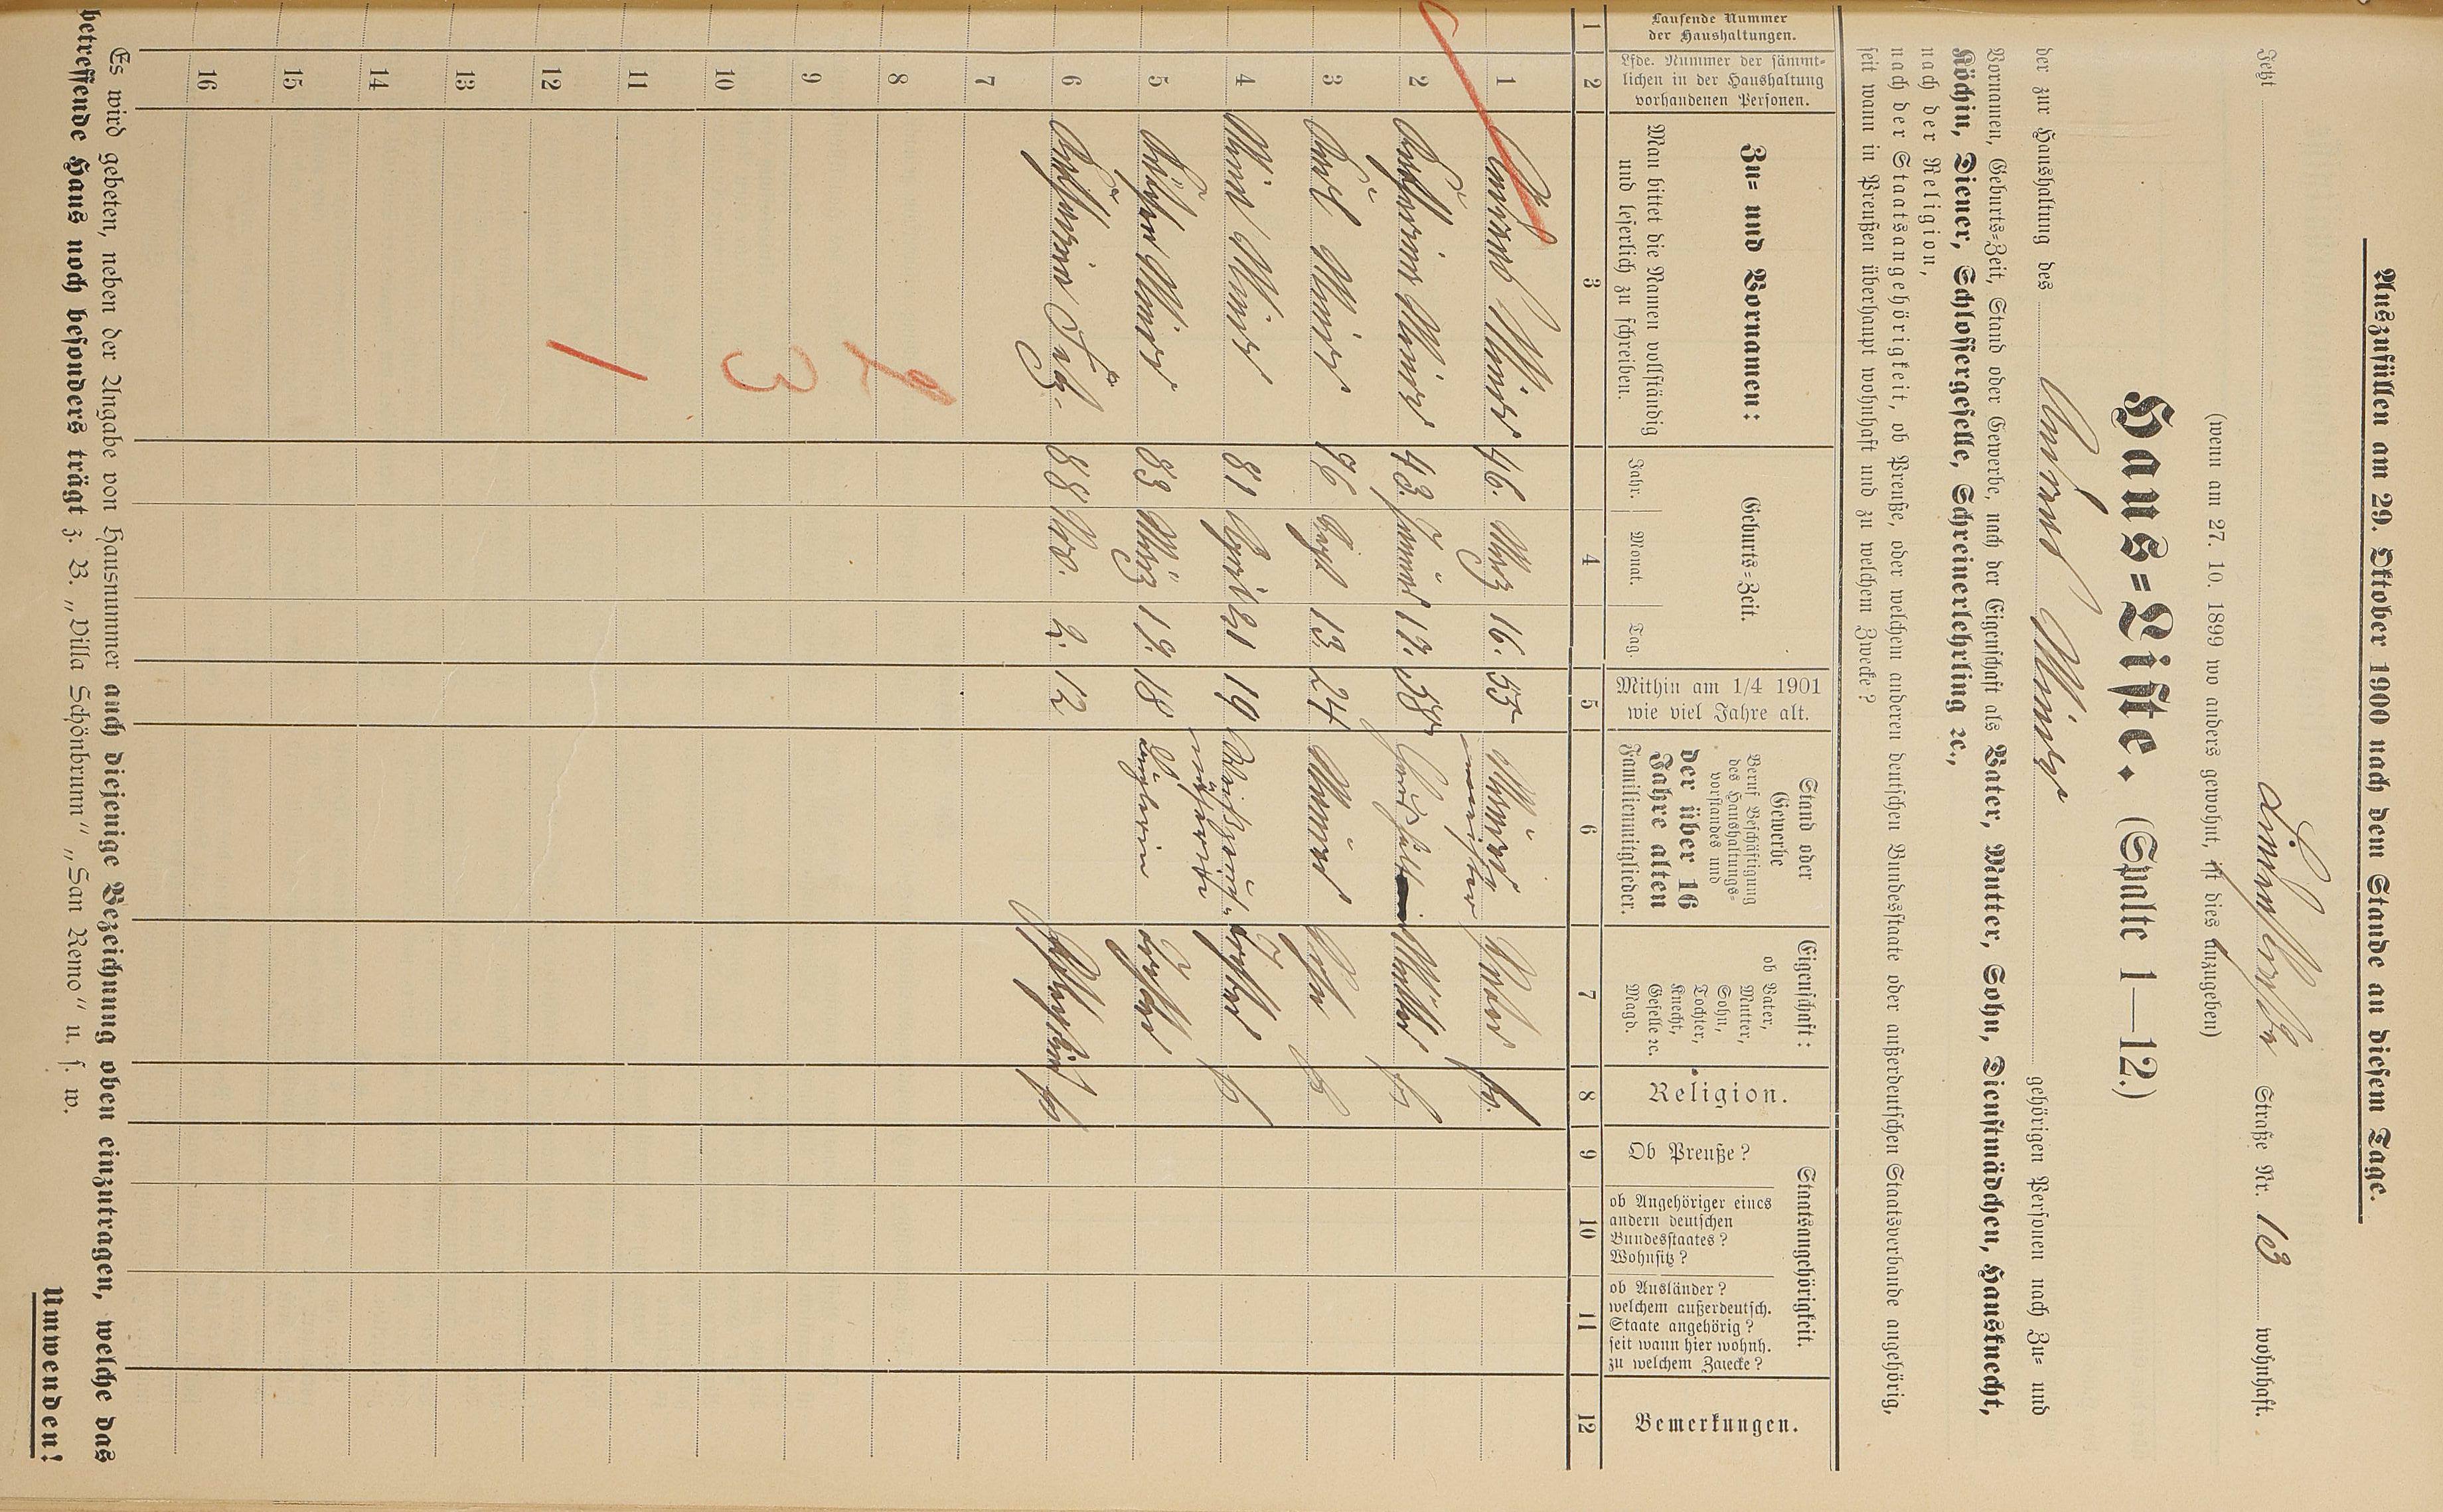 Auszufüllen am 29. Oktober 1900 nach dem Stande an diesem Tage.
Jetzt Straße Nr. 103 wohnhaft.
(wenn am 27. 10. 1899 wo anders gewohnt, ist dies anzugeben)
Haus-Liste. (Spalte 1—12.)
der zur Haushaltung des gehörigen Personen nach Zu- und
Vornamen, Geburts-Zeit, Stand oder Gewerbe, nach der Eigenschaft als Vater, Mutter, Sohn, Dienstmädchen, Hausknecht,
Köchin, Diener, Schlossergeselle, Schreinerlehrling ec.,
nach der Religion,
nach der Staatsangehörigkeit, ob Preuße, oder welchem anderen deutschen Bundesstaate oder außerdeutschen Staatsverbande angehörig,
seit wann in Preußen überhaupt wohnhaft und zu welchem Zwecke?
Laufende Nummer der Haushaltungen.
Lfde. Nummer der sämmtlichen in der Haushaltung vorhandenen Personen.
Zu- und Vornamen:
Man bittet die Namen vollständig und leserlich zu schreiben.
Geburts-Zeit.
Jahr. Monat. Tag.
Mithin am 1/4 1901 wie viel Jahre alt.
Stand oder Gewerbe
Beruf Beschäftigung des Haushaltungsvorstandes und
der über 16 Jahre alten
Familienmitglieder.
Eigenschaft:
ob Vater, Mutter, Sohn, Tochter, Knecht, Geselle ec. Magd.
Religion.
Staatsangehörigkeit.
Ob Preuße?
ob Angehöriger eines andern deutschen Bundesstaates? Wohnsitz?
ob Ausländer? welchem außerdeutsch. Staate angehörig? seit wann hier wohnh. zu welchem Zwecke?
Bemerkungen.
1 2 3 4 5 6 7 8 9 10 11 12
1 46. März 16. 55 Maurermeister Vater
2 43. Januar 12. 58 Mutter
3 Karl 76 13 24 Maurer Sohn
4 81 April 21 19 Tochter
5 83 März 19. 18 Büglerin Tochter
6 Katharina 88 Nov. 2. 12
7
8
9
10
11
12
13
14
15
16
Es wird gebeten, neben der Angabe von Hausnummer auch diejenige Bezeichnung oben einzutragen, welche das
betreffende Haus noch besonders trägt z. B. „Villa Schönbrunn" „San Remo" u. s. w.
Umwenden!